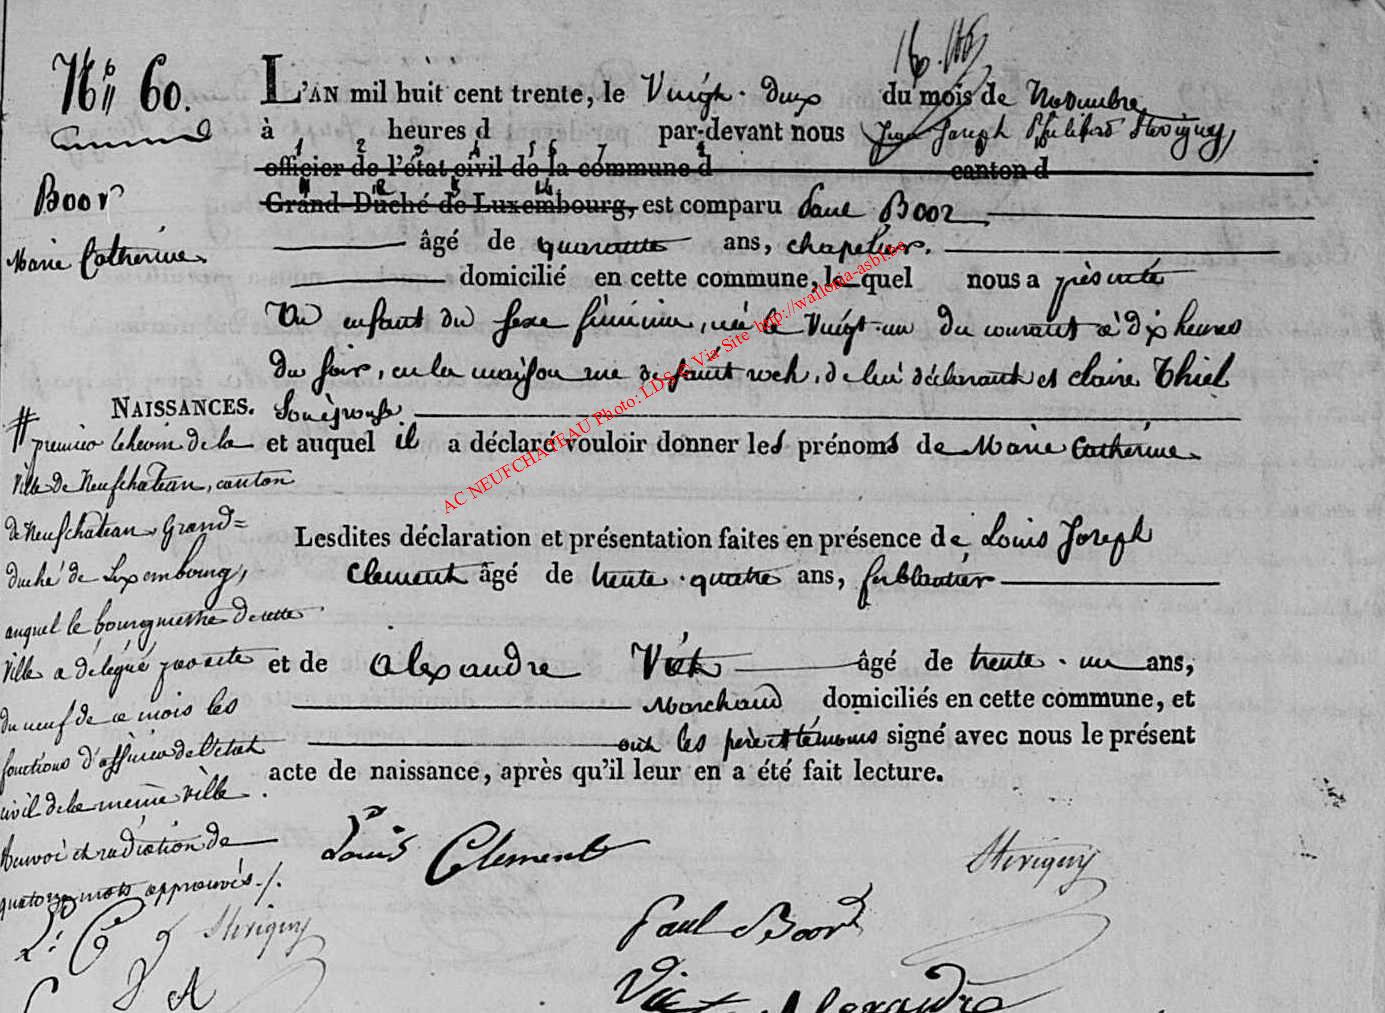 N° 60.
L'AN mil huit cent trente, le Vingt-deux du mois de Novembre
à heures d par-devant nous Jean Joseph Philibert Stevigny,
1 2 3 4 5 6 7
officier de l'état civil de la commune d canton d
Grand-Duché de Luxembourg, est comparu Paul Boor
âgé de quarante ans, chapelier.
domicilié en cette commune, lequel nous a présenté
Un enfant du sexe féminin, née le Vingt-un du courant à dix heures
du soir, en la maison rue de saint roch, de lui déclarant et claire Thiel
son épouse
et auquel il a déclaré vouloir donner les prénoms de Marie Catherine.
Lesdites déclaration et présentation faites en présence de Louis Joseph
Clement âgé de trente-quatre ans, ferblantier
et de Alexandre Vict âgé de trente-un ans,
Marchand domiciliés en cette commune, et
ont les père et témoins signé avec nous le présent
acte de naissance, après qu'il leur en a été fait lecture.
Boor
Marie Catherine.
NAISSANCES.
# premier Echevin de la
Ville de Neufchateau, canton
de Neufchateau, Grand=
duché de Luxembourg,
auquel le bourgmestre de cette
Ville a délégué par acte
du neuf de ce mois les
fonctions d'officier de l'état
civil de la même Ville.
Renvoi et radiation de
quatorze mots approuvés./.
Louis Clement
Stevigny
Paul Boor
Stevigny
Vict Alexandre
AC NEUFCHATEAU Photo: LDS © Via Site http://wallonia-asbl.be